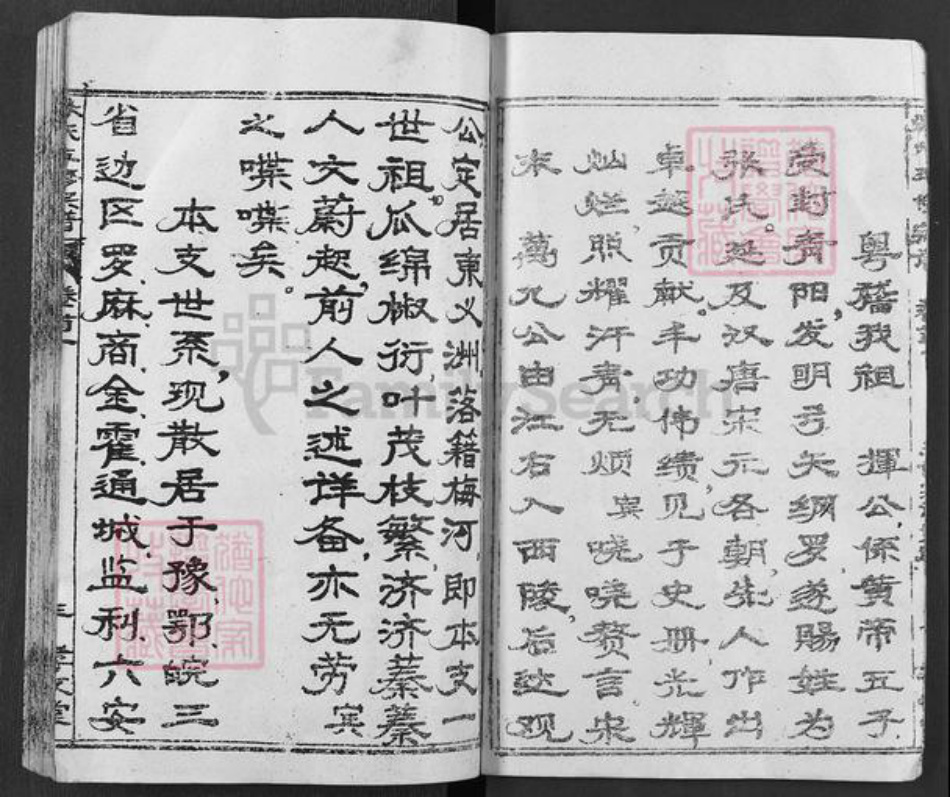 粤稽我祖 揮公,係黄帝五子
受封青阳,发明弓矢纲罗遂赐姓为
张氏。延及汉唐宋元各朝,先人作出
卓越贡献。丰功伟绩,见于史册光輝
灿烂,照耀汗青,无烦 宾哓哓赘言宋
末 萬九公由江右入西陵,后达观
公,定居東义洲,落籍梅河,即本支一
世祖。瓜绵椒衍,叶茂枝繁,济济蓁蓁
人文蔚起,前人之述详备,亦无劳 宾
之喋喋矣。
本支世系,现散居于豫、鄂、皖三
省边区罗、麻、商、金、霍、通城、监利、六安
FamilySearch